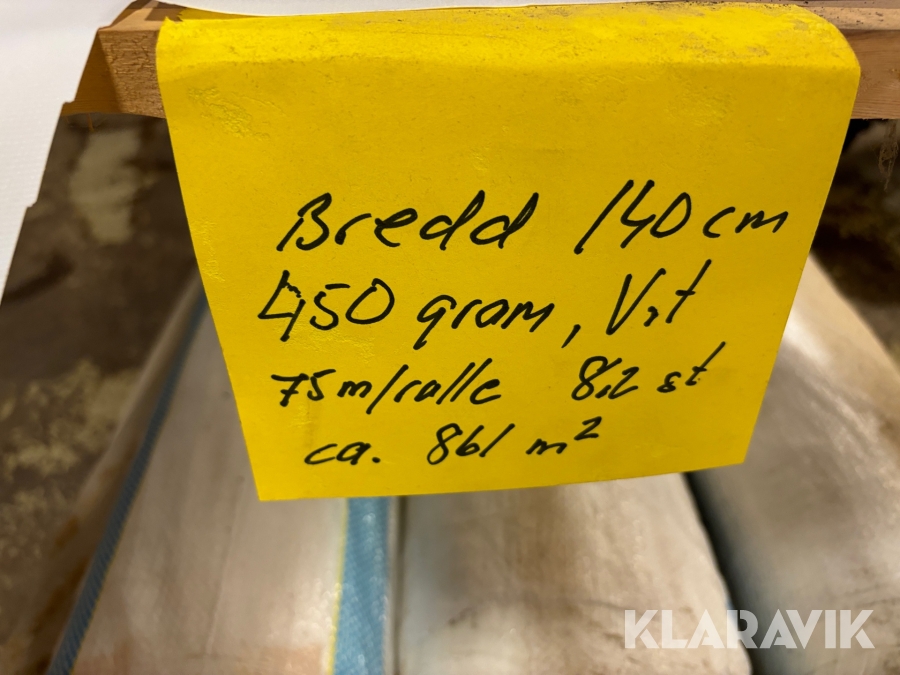 Bredd 140 cm
450 gram, Vit
75m/rulle 8,2 st
ca. 861 m²
KLARAVIK